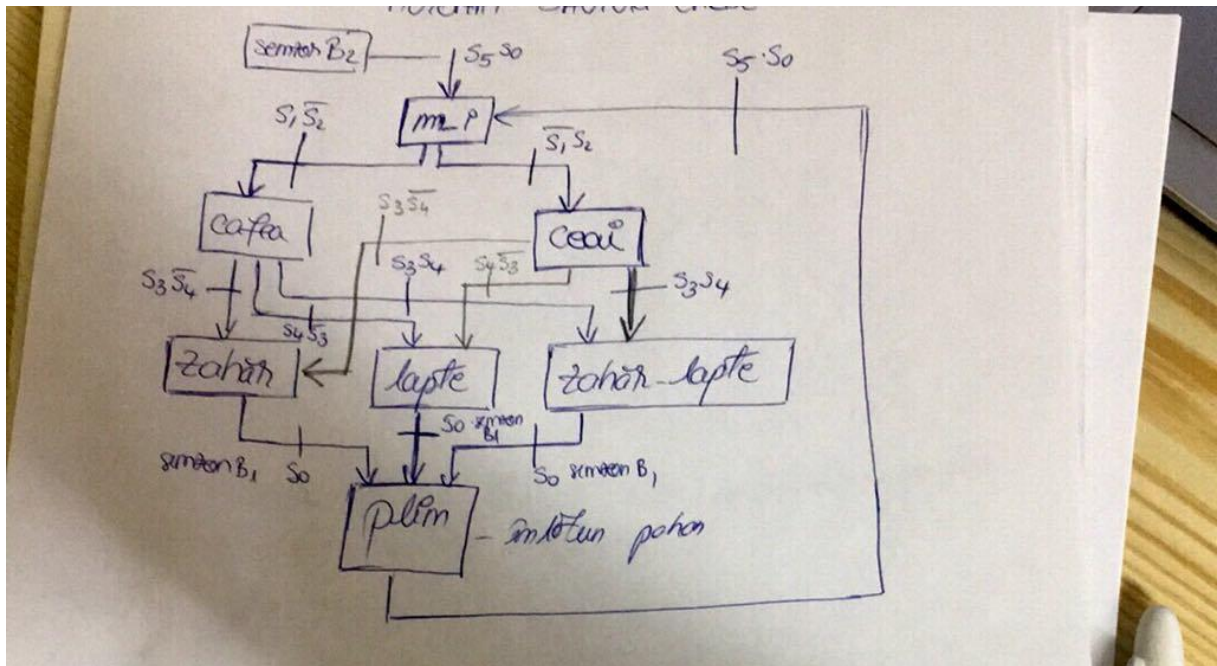 senzor B2
S5 S0
S5·S0
m_p
S1 S̅2̅
S̅1̅ S2
cafea
ceai
S3 S̅4̅
S3 S4
S4 S̅3̅
S3 S̅4̅
S3 S4
S4 S̅3̅
zahăr
lapte
zahăr-lapte
senzon B1 S0
S0 · senzon B1
S0 senzon B1
plin
- înlătur pahar